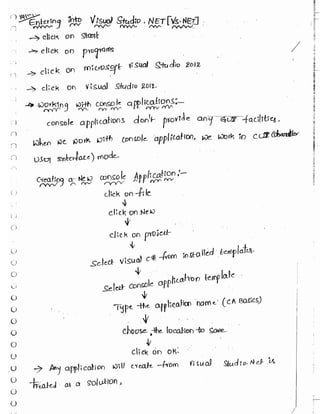 Entering into Visual Studio . NET [VS.NET]
→ click on start
→ click on programs
→ click on microsoft visual Studio 2012
→ click on visual studio 2012.
→ Working with console applications:-
console applications don't provide any GUI facilities.
When we work with console application, we work in CUI (Character
User interface) mode.
Creating a New console Application:-
click on file
↓
click on New
↓
click on project
↓
Select visual c# from installed templates.
↓
Select console application template.
↓
Type the application name. (CA Basics)
↓
choose the location to save.
↓
click on OK.
→ Any application will create from visual Studio.Net is
treated as a solution,